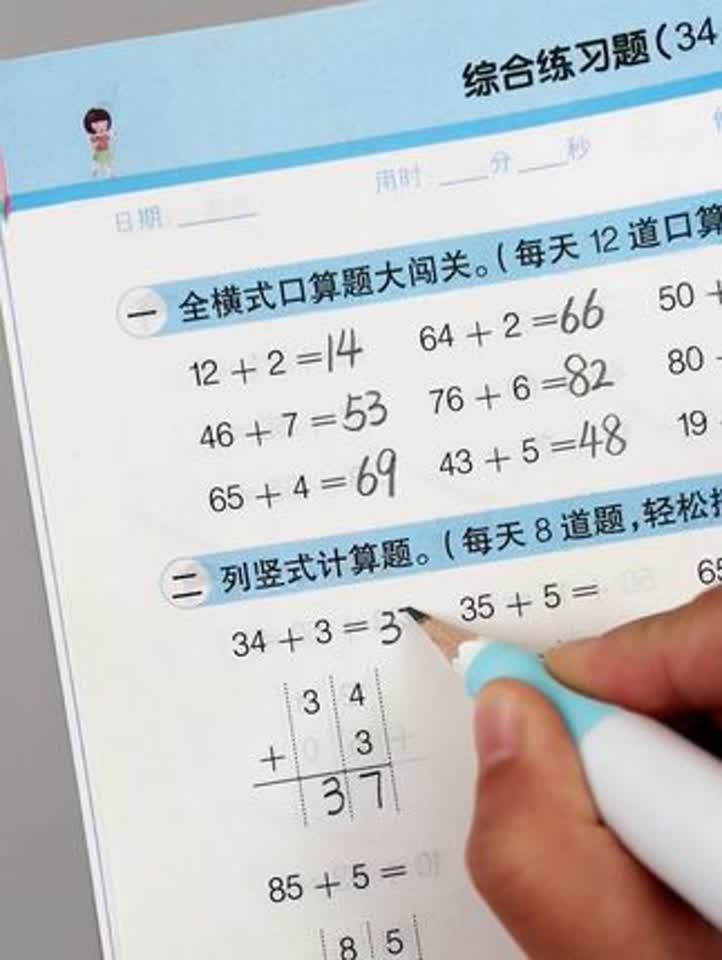 综合练习题(34
日期:____ 用时:____分____秒
一 全横式口算题大闯关。(每天12道口算
12+2=14 64+2=66 50+
46+7=53 76+6=82 80
65+4=69 43+5=48 19
二 列竖式计算题。(每天8道题,轻松
34+3=37 35+5= 65
3 4
+ 3
3 7
85+5=
8 5